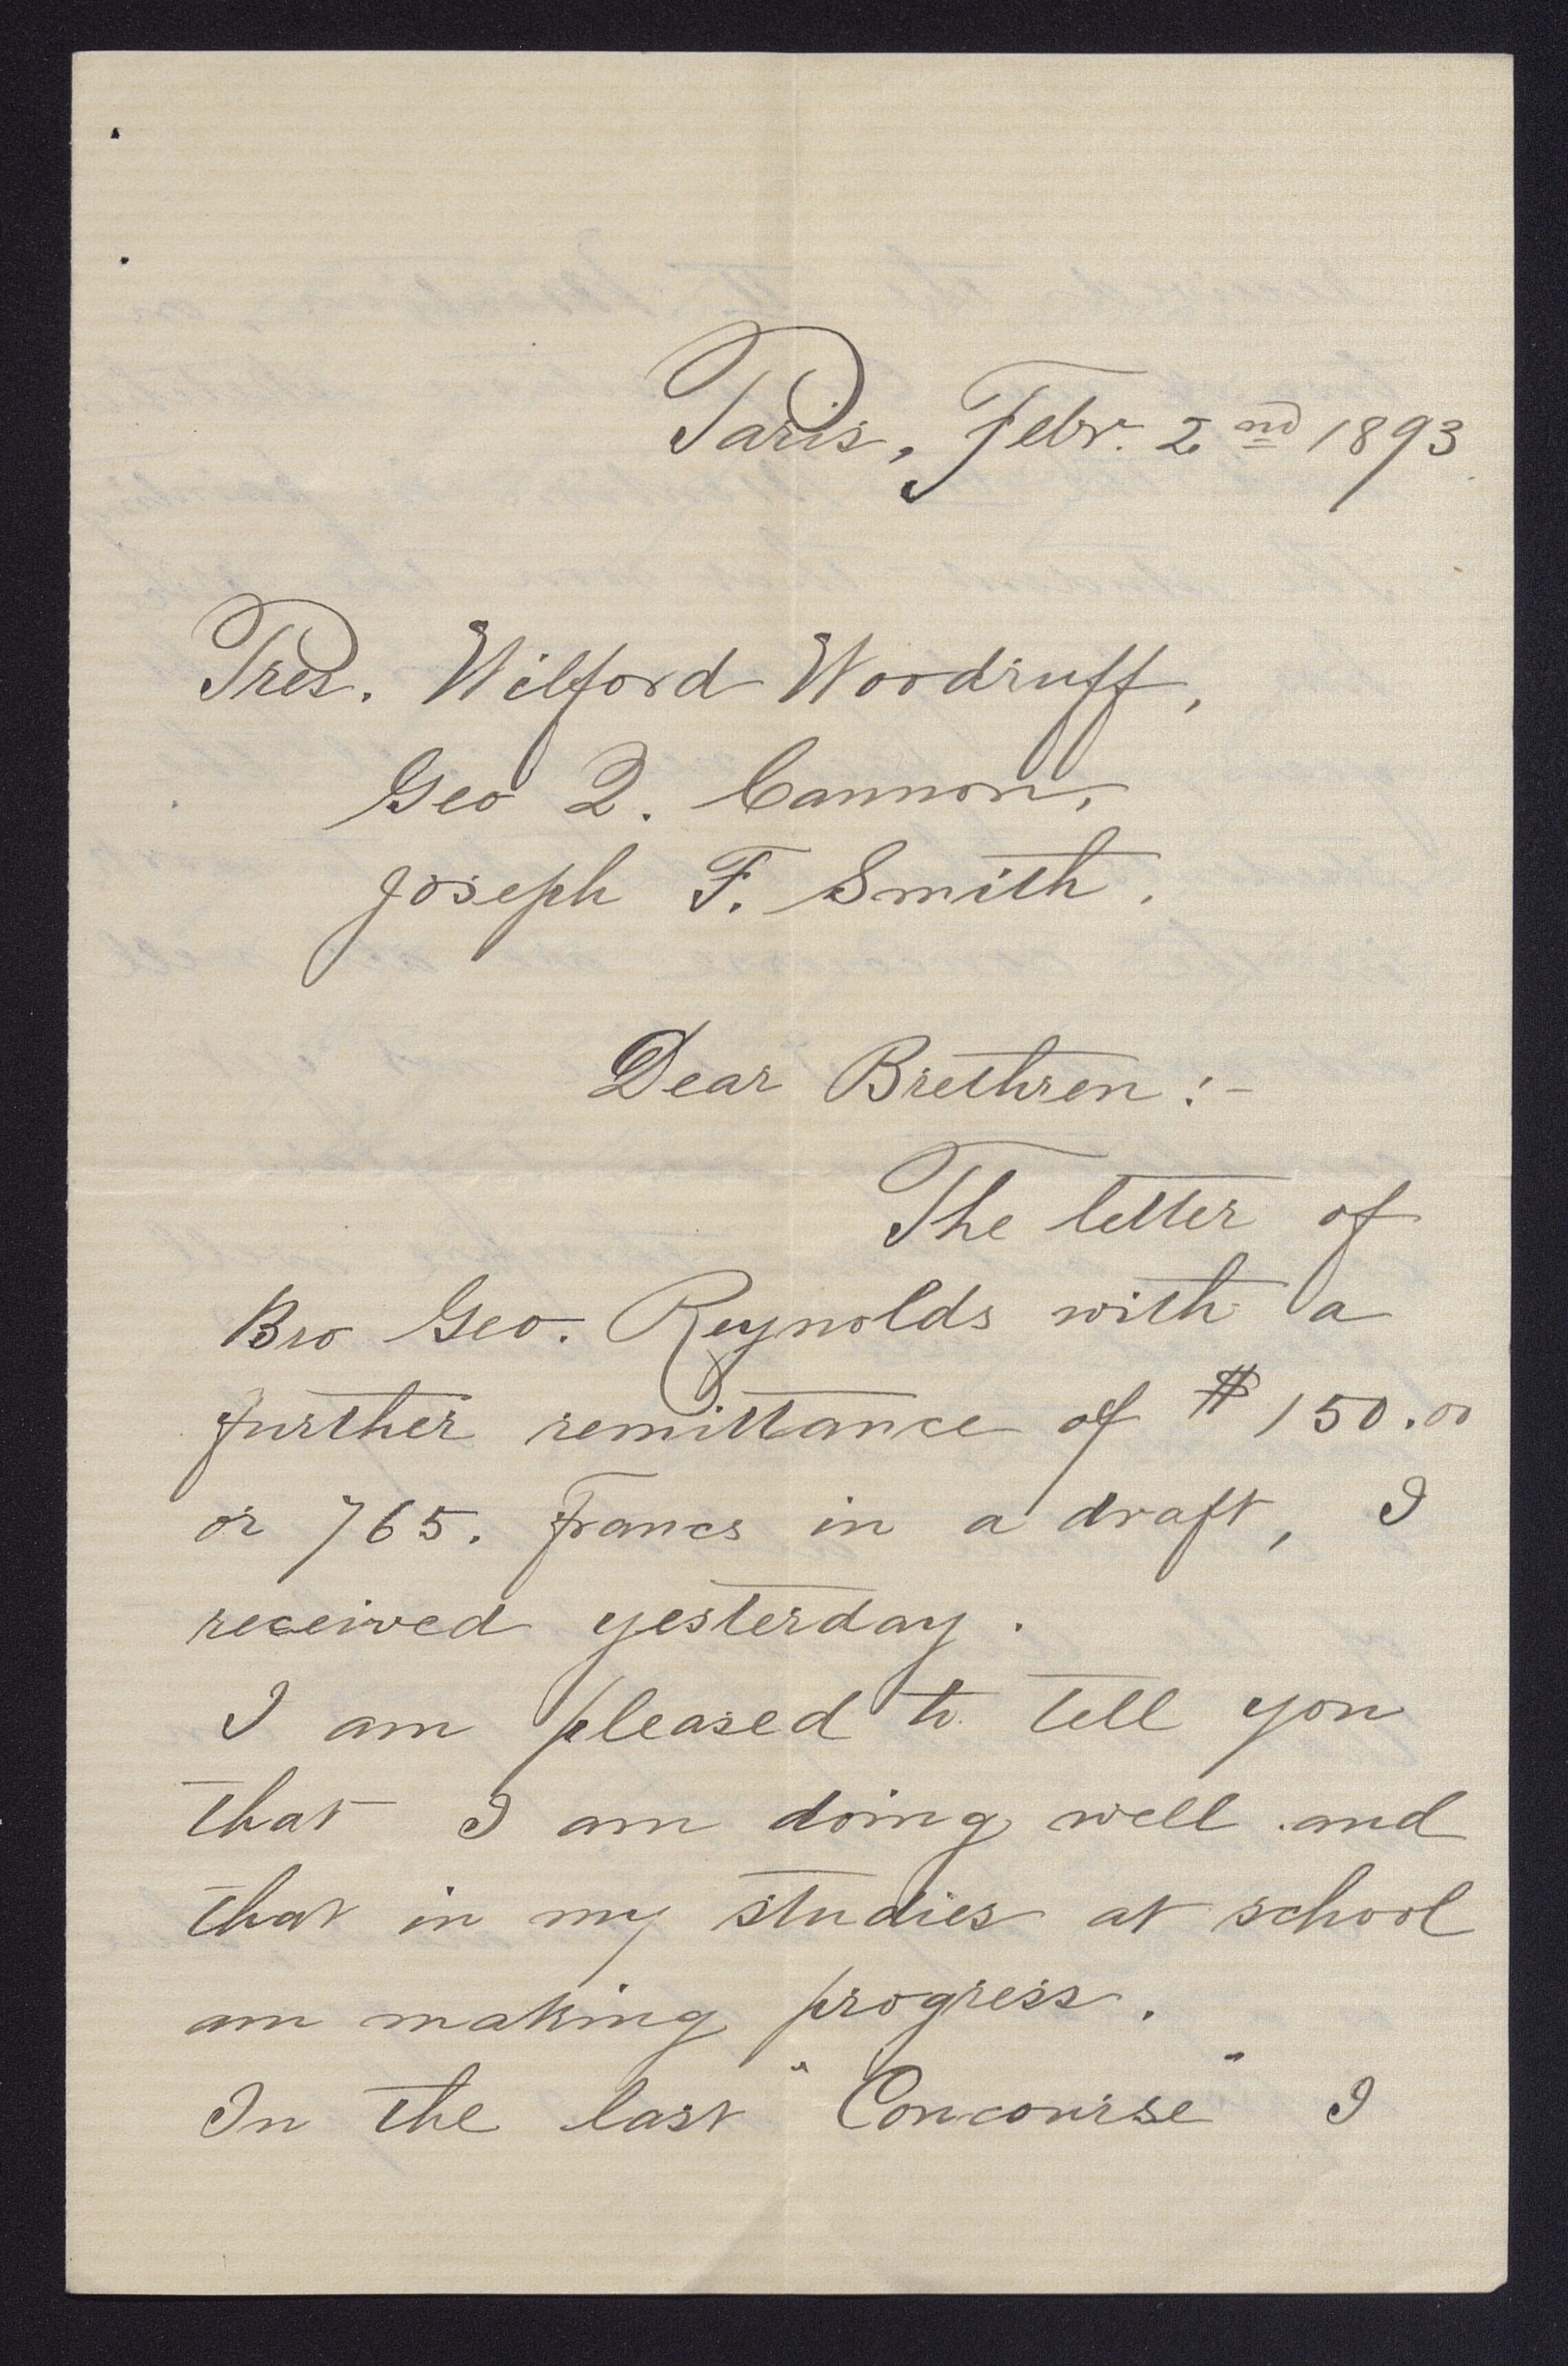 Paris, Febr. 2nd 1893
Pres. Wilford Woodruff,
Geo Q. Cannon,
Joseph F. Smith.
Dear Brethren :-
The letter of
Bro Geo. Reynolds with a
further remittance of $150.00
or 765. francs in a draft, I
received yesterday.
I am pleased to tell you
that I am doing well and
that in my studies at school
am making progress.
In the last "Concourse" I